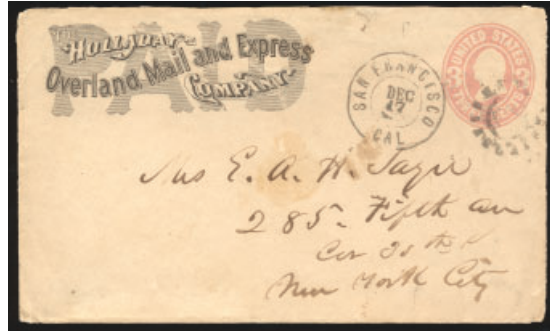 THE
HOLLADAY
PAID
Overland Mail and Express
COMPANY
SAN FRANCISCO
DEC
17
CAL
UNITED STATES
Mrs E. A. H.
285. Fifth av
Cor 30th
New York City